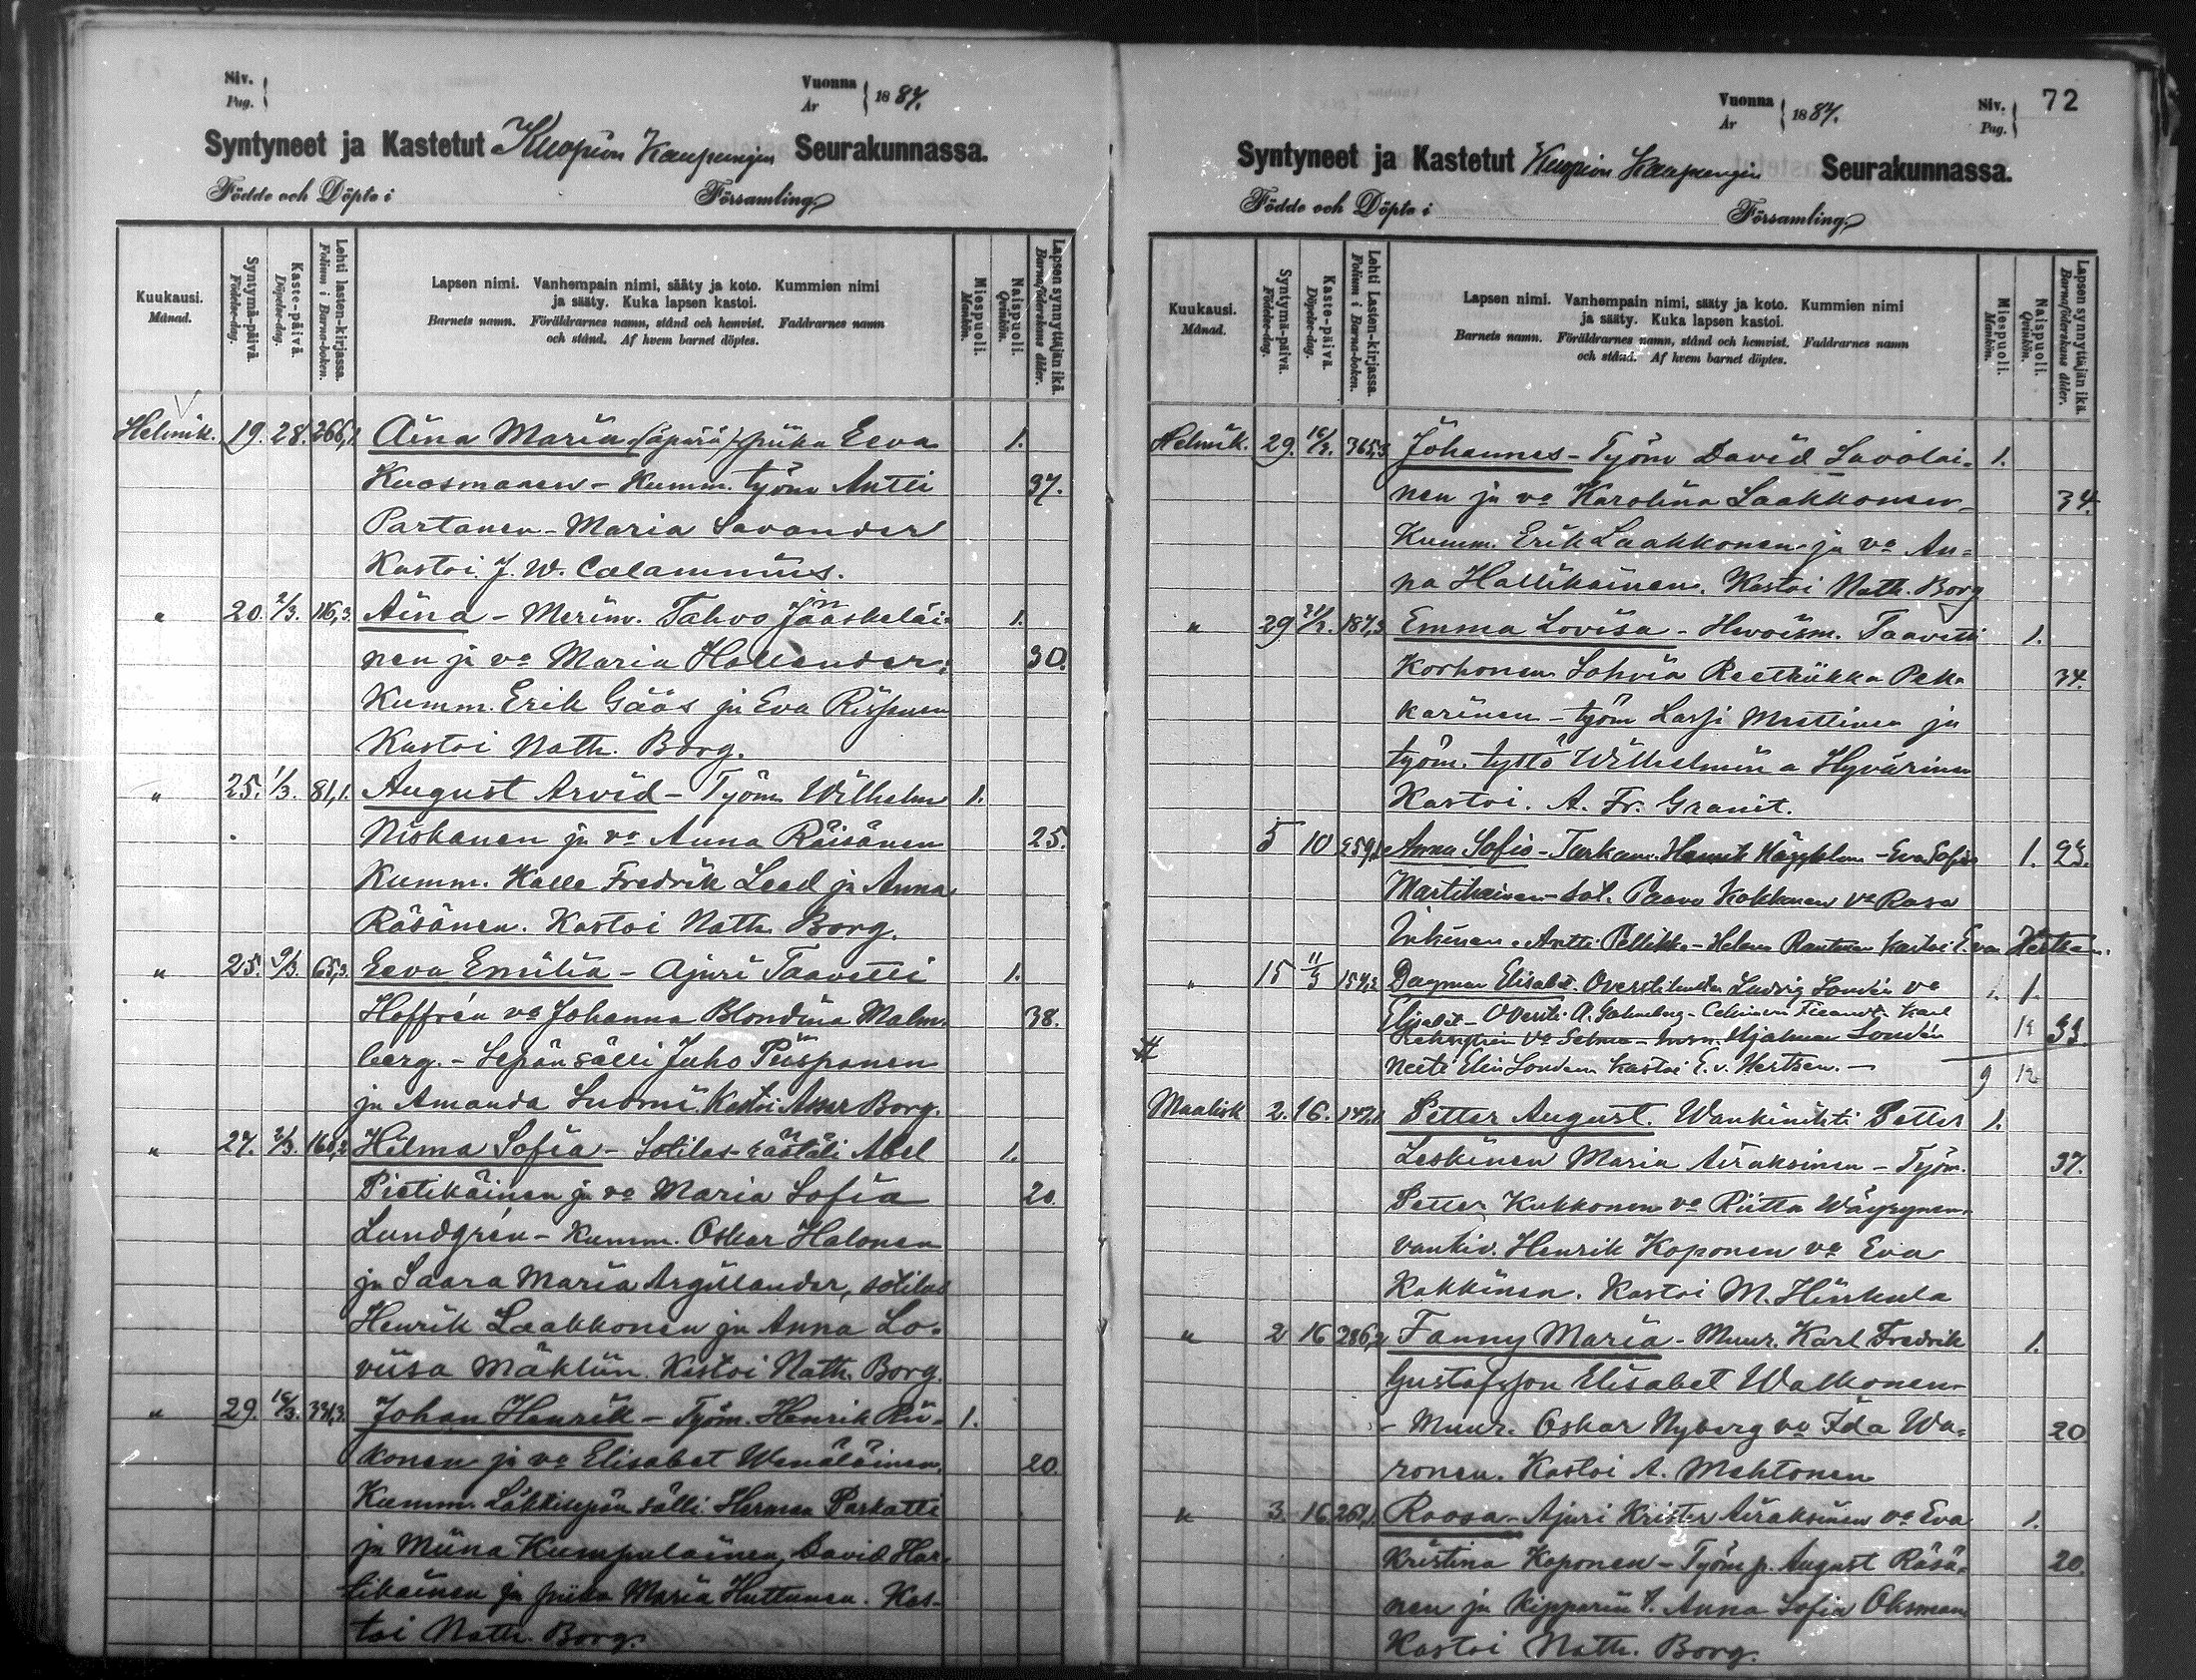 Niv.
Pag.
Vuonna
År
1884.
Syntyneet ja Kastetut Kuopion Kaupungin Seurakunnassa.
Födde och Döpte i Församling
Kuukausi.
Månad.
Syntymä-päivä.
Födelse-dag.
Kaste-päivä.
Döpelse-dag.
Lehti lasten-kirjassa.
Folium i Barna-boken.
Lapsen nimi. Vanhempain nimi, sääty ja koto. Kummien nimi
ja sääty. Kuka lapsen kastoi.
Barnets namn. Föräldrarnes namn, stånd och hemvist. Faddrarnes namn
och stånd. Af hvem barnet döptes.
Miespuoli.
Mankön.
Naispuoli.
Qvinkön.
Lapsen synnyttäjän ikä.
Barnaföderskans ålder.
Helmik. 19. 28. 266,1 Aina Maria (äpärä) piika Eeva 1.
Kuosmanen - Kumm. työm Antti 37.
Partanen - Maria Savander
Kastoi J. W. Calamnius.
" 20. 2/3. 116,3. Aina - Merim. Tahvo Jääskeläi= 1.
nen ja vo Maria Hollender; 30.
Kumm. Erik Gäös ja Eva Rissanen
Kastoi Nath. Borg.
" 25. 1/3. 81,1. August Arvid - Työm Wilhelm 1.
Niskanen ja vo Anna Räisänen 25.
Kumm. Kalle Fredrik Leed ja Anna
Räsänen. Kastoi Nath. Borg.
" 25. 9/3. 65,3. Eeva Emilia - Ajuri Taavetti 1.
Hoffrén vo Johanna Blondina Malm- 38.
berg. - Sepän sälli Juho Piispanen
ja Amanda Suomi. Kastoi Assar Borg.
" 27. 2/3. 160,2 Hilma Sofia - Sotilas-räätäli Abel 1.
Pietikäinen ja vo Maria Sofia 20.
Lundgrén - Kumm. Oskar Halonen
ja Saara Maria Argillander, sotilas
Henrik Laakkonen ja Anna Lo-
viisa Mäklin. Kastoi Nath. Borg.
" 29. 16/3. 331,3. Johan Henrik - Työm. Henrik Rii- 1.
konen ja vo Elisabet Wenäläinen. 20.
Kumm. Läkkisepän sälli Herman Parkatti
ja Miina Kumpulainen, David Har-
tikainen ja piika Maria Huttunen. Kas-
toi Nath. Borg.
72
Vuonna
År
1884.
Niv.
Pag.
Syntyneet ja Kastetut Kuopion Kaupungin Seurakunnassa.
Födde och Döpte i Församling
Kuukausi.
Månad.
Syntymä-päivä.
Födelse-dag.
Kaste-päivä.
Döpelse-dag.
Lehti Lasten-kirjassa.
Folium i Barna-boken.
Lapsen nimi. Vanhempain nimi, sääty ja koto. Kummien nimi
ja sääty. Kuka lapsen kastoi.
Barnets namn. Föräldrarnes namn, stånd och hemvist. Faddrarnes namn
och stånd. Af hvem barnet döptes.
Miespuoli.
Mankön.
Naispuoli.
Qvinkön.
Lapsen synnyttäjän ikä.
Barnaföderskans ålder.
Helmik. 29. 16/3. 365,3 Johannes - Työm David Savolai= 1.
nen ja vo Karolina Laakkonen - 34.
Kumm. Erik Laakkonen ja vo An=
na Hallikainen. Kastoi Nath. Borg
" 29 187,3 Emma Lovisa - Taavetti 1.
Korhonen Sohvia Reetriikka Pek- 34.
karinen - työm Lassi Miettinen ja
työm. tyttö Wilhelmiina Hyvärinen
Kastoi. A. Fr. Granit.
5 10 Anna Sofia - Henrik Häggblom - Eva Sofia 1. 23.
Martikainen - sot. Paavo Kokkonen vo Rosa
Inkinen. Antti Pellikka - Helena Rautanen kastoi E. von Hertzen.
" 15 11/3 154,2 Dagmar Elisabet. Ludvig Londén vo 1. 1.
Elisabet - Karl
vo Selma - Hjalmar Londén 12 33
neiti Elin Londén kastoi E. v. Hertzen. - 9 12
Maalisk 2. 16. 142,1 Petter August. Wankinihti Petter 1.
Leskinen Maria Airaksinen - Työm. 37.
Petter Kukkonen vo Riitta Wäyrynen.
vankiv. Henrik Koponen vo Eva
Kakkinen. Kastoi M. Hirkula
" 2 16 286,2 Fanny Maria - Muur. Karl Fredrik 1.
Gustafsson Elisabet Walkonen
- Muur. Oskar Nyberg vo Ida Wa= 20
ronen. Kastoi A. Mehtonen
" 3. 16 261,1. Roosa - Ajuri Krister Airaksinen vo Eva 1.
Kristina Koponen - Työm p. August Räsä= 20.
nen ja kipparin t. Anna Sofia Ohsman
Kastoi Nath. Borg.